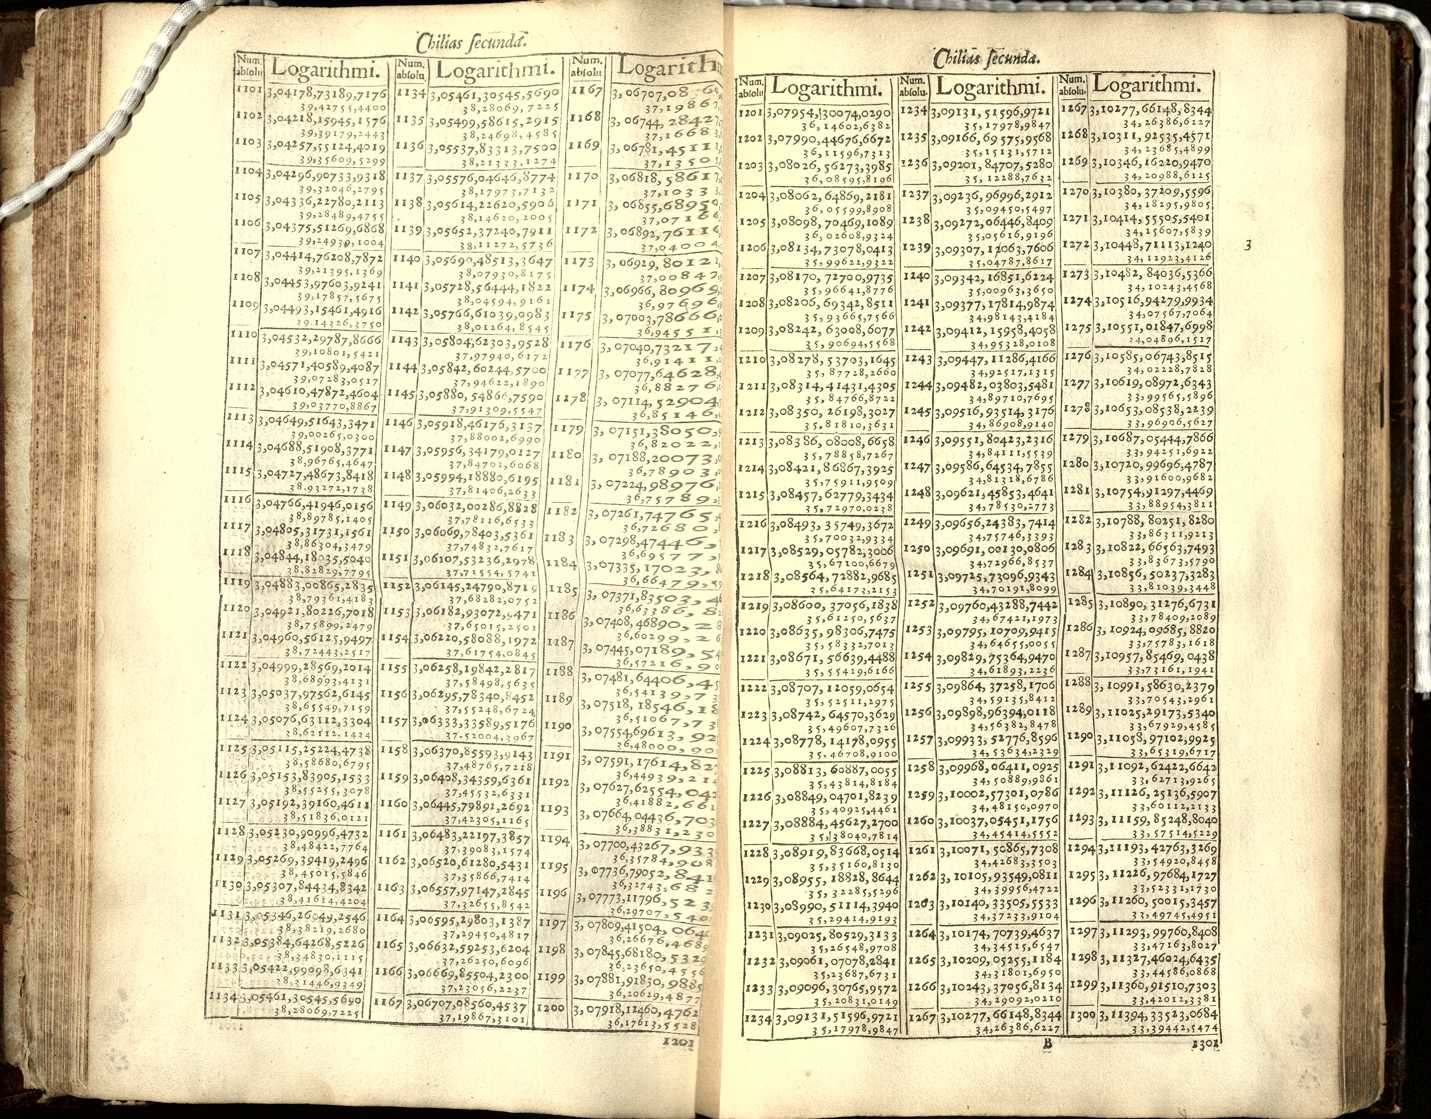 Chilias secunda.
Num. absolu. Logarithmi.
1101 3,04178,73189,7176
39,42755,4400
1102 3,04218,15945,1576
39,39179,2443
1103 3,04257,55124,4019
39,35609,5299
1104 3,04296,90733,9318
39,32046,2795
1105 3,04336,22780,2113
39,28489,4755
1106 3,04375,51269,6868
39,24939,1004
1107 3,04414,76208,7872
39,21395,1369
1108 3,04453,97603,9241
39,17857,5675
1109 3,04493,15461,4916
39,14326,3750
1110 3,04532,29787,8666
39,10801,5421
1111 3,04571,40589,4087
39,07283,0517
1112 3,04610,47872,4604
39,03770,8867
1113 3,04649,51643,3471
39,00265,0300
1114 3,04688,51908,3771
38,96765,4647
1115 3,04727,48673,8418
38,93272,1738
1116 3,04766,41946,0156
38,89785,1405
1117 3,04805,31731,1561
38,86304,3479
1118 3,04844,18035,5040
38,82829,7795
1119 3,04883,00865,2835
38,79361,4183
1120 3,04921,80226,7018
38,75899,2479
1121 3,04960,56125,9497
38,72443,2517
1122 3,04999,28569,2014
38,68993,4131
1123 3,05037,97562,6145
38,65549,7159
1124 3,05076,63112,3304
38,62112,1434
1125 3,05115,25224,4738
38,58680,6795
1126 3,05153,83905,1533
38,55255,3078
1127 3,05192,39160,4611
38,51836,0121
1128 3,05230,90996,4732
38,48422,7764
1129 3,05269,39419,2496
38,45015,5846
1130 3,05307,84434,8342
38,41614,4204
1131 3,05346,26049,2546
38,38219,2680
1132 3,05384,64268,5226
38,34830,1115
1133 3,05422,99098,6341
38,31446,9349
1134 3,05461,30545,5690
38,28069,7225
Num. absolu. Logarithmi.
1134 3,05461,30545,5690
38,28069,7225
1135 3,05499,58615,2915
38,24698,4585
1136 3,05537,83313,7500
38,21333,1274
1137 3,05576,04646,8774
38,17973,7132
1138 3,05614,22620,5906
38,14620,2005
1139 3,05652,37240,7911
38,11272,5736
1140 3,05690,48513,3647
38,07930,8175
1141 3,05728,56444,1822
38,04594,9161
1142 3,05766,61039,0983
38,01264,8545
1143 3,05804,62303,9528
37,97940,6172
1144 3,05842,60244,5700
37,94622,1890
1145 3,05880,54866,7590
37,91309,5547
1146 3,05918,46176,3137
37,88002,6990
1147 3,05956,34179,0127
37,84701,6068
1148 3,05994,18880,6195
37,81406,2633
1149 3,06032,00286,8828
37,78116,6533
1150 3,06069,78403,5361
37,74832,7617
1151 3,06107,53236,2978
37,71554,5741
1152 3,06145,24790,8719
37,68282,0752
1153 3,06182,93072,9471
37,65015,2501
1154 3,06220,58088,1972
37,61754,0845
1155 3,06258,19842,2817
37,58498,5635
1156 3,06295,78340,8452
37,55248,6724
1157 3,06333,33589,5176
37,52004,3967
1158 3,06370,85593,9143
37,48765,7218
1159 3,06408,34359,6361
37,45532,6331
1160 3,06445,79891,2692
37,42305,1165
1161 3,06483,22197,3857
37,39083,1574
1162 3,06520,61280,5431
37,35866,7414
1163 3,06557,97147,2845
37,32655,8542
1164 3,06595,29803,1387
37,29450,4817
1165 3,06632,59253,6204
37,26250,6096
1166 3,06669,85504,2300
37,23056,2237
1167 3,06707,08560,4537
37,19867,3101
Num. absolu. Logarith
1167 3,06707,08
37,1986
1168 3,06744,2842
37,1668
1169 3,06781,4511
37,1350
1170 3,06818,5861
37,1033
1171 3,06855,6895
37,071
1172 3,06892,7611
37,0400
1173 3,06929,8012
37,0084
1174 3,06966,8096
36,9769
1175 3,07003,78666
36,9455
1176 3,07040,7321
36,9141
1177 3,07077,64628
36,8827
1178 3,07114,52904
36,85146
1179 3,07151,38050
36,82022
1180 3,07188,20073
36,78903
1181 3,07224,98976
36,75789
1182 3,07261,74765
36,72680
1183 3,07298,47446
36,69577
1184 3,07335,17023
36,66479
1185 3,07371,83503
36,63386
1186 3,07408,46890
36,60299
1187 3,07445,07189
36,57216
1188 3,07481,64406
36,54139
1189 3,07518,18546
36,51067
1190 3,07554,69613
36,48000
1191 3,07591,17614
36,44939
1192 3,07627,62554
36,41882
1193 3,07664,04436
36,38831
1194 3,07700,43267
36,35784
1195 3,07736,79052
36,32743
1196 3,07773,11796
36,29707
1197 3,07809,41504
36,26676
1198 3,07845,68180
36,23650
1199 3,07881,91830,9885
36,20629,4877
1200 3,07918,12460,4762
36,17613,5528
1201
Chilias secunda.
Num. absolu. Logarithmi.
1201 3,07954,30074,0290
36,14602,6382
1202 3,07990,44676,6672
36,11596,7313
1203 3,08026,56273,3985
36,08595,8196
1204 3,08062,64869,2181
36,05599,8908
1205 3,08098,70469,1089
36,02608,9324
1206 3,08134,73078,0413
35,99622,9322
1207 3,08170,72700,9735
35,96641,8776
1208 3,08206,69342,8511
35,93665,7566
1209 3,08242,63008,6077
35,90694,5568
1210 3,08278,53703,1645
35,87728,2660
1211 3,08314,41431,4305
35,84766,8722
1212 3,08350,26198,3027
35,81810,3631
1213 3,08386,08008,6658
35,78858,7267
1214 3,08421,86867,3925
35,75911,9509
1215 3,08457,62779,3434
35,72970,0238
1216 3,08493,35749,3672
35,70032,9334
1217 3,08529,05782,3006
35,67100,6679
1218 3,08564,72882,9685
35,64173,2153
1219 3,08600,37056,1838
35,61250,5637
1220 3,08635,98306,7475
35,58332,7013
1221 3,08671,56639,4488
35,55419,6166
1222 3,08707,12059,0654
35,52511,2975
1223 3,08742,64570,3629
35,49607,7326
1224 3,08778,14178,0955
35,46708,9100
1225 3,08813,60887,0055
35,43814,8184
1226 3,08849,04701,8239
35,40925,4461
1227 3,08884,45627,2700
35,38040,7814
1228 3,08919,83668,0514
35,35160,8130
1229 3,08955,18828,8644
35,32285,5296
1230 3,08990,51114,3940
35,29414,9193
1231 3,09025,80529,3133
35,26548,9708
1232 3,09061,07078,2841
35,23687,6731
1233 3,09096,30765,9572
35,20831,0149
1234 3,09131,51596,9721
35,17978,9847
Num. absolu. Logarithmi.
1234 3,09131,51596,9721
35,17978,9847
1235 3,09166,69575,9568
35,15131,5712
1236 3,09201,84707,5280
35,12288,7632
1237 3,09236,96996,2912
35,09450,5497
1238 3,09272,06446,8409
35,05616,9196
1239 3,09307,12063,7606
35,04787,8617
1240 3,09342,16851,6224
35,00963,3650
1241 3,09377,17814,9874
34,98143,4184
1242 3,09412,15958,4058
34,95328,0108
1243 3,09447,11286,4166
34,92517,1315
1244 3,09482,03803,5481
34,89710,7695
1245 3,09516,93514,3176
34,86908,9140
1246 3,09551,80423,2316
34,84111,5539
1247 3,09586,64534,7855
34,81318,6786
1248 3,09621,45853,4641
34,78530,2773
1249 3,09656,24383,7414
34,75746,3393
1250 3,09691,00130,0806
34,72966,8537
1251 3,09725,73096,9343
34,70191,8099
1252 3,09760,43288,7442
34,67421,1973
1253 3,09795,10709,9415
34,64655,0055
1254 3,09829,75364,9470
34,61893,2236
1255 3,09864,37258,1706
34,59135,8412
1256 3,09898,96394,0118
34,56382,8478
1257 3,09933,52776,8596
34,53634,2329
1258 3,09968,06411,0925
34,50889,9861
1259 3,10002,57301,0786
34,48150,0970
1260 3,10037,05451,1756
34,45414,5552
1261 3,10071,50865,7308
34,42683,3503
1262 3,10105,93549,0811
34,39956,4722
1263 3,10140,33505,5533
34,37233,9104
1264 3,10174,70739,4637
34,34515,6547
1265 3,10209,05255,1184
34,31801,6950
1266 3,10243,37056,8134
34,29092,0210
1267 3,10277,66148,8344
34,26386,6227
Num. absolu. Logarithmi.
1267 3,10277,66148,8344
34,26386,6227
1268 3,10311,92535,4571
34,23685,4899
1269 3,10346,16220,9470
34,20988,6125
1270 3,10380,37209,5596
34,18295,9805
1271 3,10414,55505,5401
34,15607,5839
1272 3,10448,71113,1240
34,12923,4126
1273 3,10482,84036,5366
34,10243,4568
1274 3,10516,94279,9934
34,07567,7064
1275 3,10551,01847,6998
34,04896,1517
1276 3,10585,06743,8515
34,02228,7828
1277 3,10619,08972,6343
33,99565,5896
1278 3,10653,08538,2239
33,96906,5627
1279 3,10687,05444,7866
33,94251,6922
1280 3,10720,99696,4787
33,91600,9682
1281 3,10754,91297,4469
33,88954,3811
1282 3,10788,80251,8280
33,86311,9213
1283 3,10822,66563,7493
33,83673,5790
1284 3,10856,50237,3283
33,81039,3448
1285 3,10890,31276,6731
33,78409,2089
1286 3,10924,09685,8820
33,75783,1618
1287 3,10957,85469,0438
33,73161,1941
1288 3,10991,58630,2379
33,70543,2961
1289 3,11025,29173,5340
33,67929,4585
1290 3,11058,97102,9925
33,65319,6717
1291 3,11092,62422,6642
33,62713,9265
1292 3,11126,25136,5907
33,60112,2133
1293 3,11159,85248,8040
33,57514,5229
1294 3,11193,42763,3269
33,54920,8458
1295 3,11226,97684,1727
33,52331,1730
1296 3,11260,50015,3457
33,49745,4951
1297 3,11293,99760,8408
33,47163,8027
1298 3,11327,46924,6435
33,44586,0868
1299 3,11360,91510,7303
33,42012,3381
1300 3,11394,33523,0684
33,39442,5474
B 1301
3